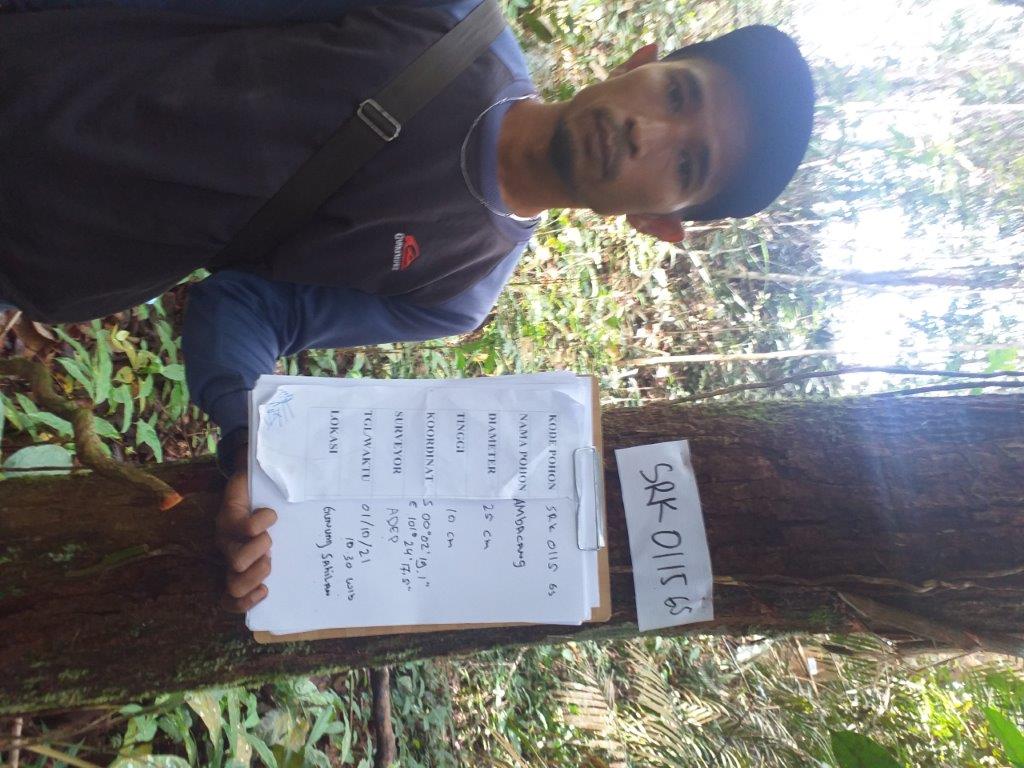 SRK 0115 GS
KODE POHON SRK 0115 GS
NAMA POHON AMBACANG
DIAMETER 25 cm
TINGGI 10 cm
KOORDINAT S 00°02'19.1"
E 101°24'17.5"
SURVEYOR ADEP
TGL/WAKTU 01/10/21
10 30 WIB
LOKASI Gunung Sahilan
QUIKSILVER